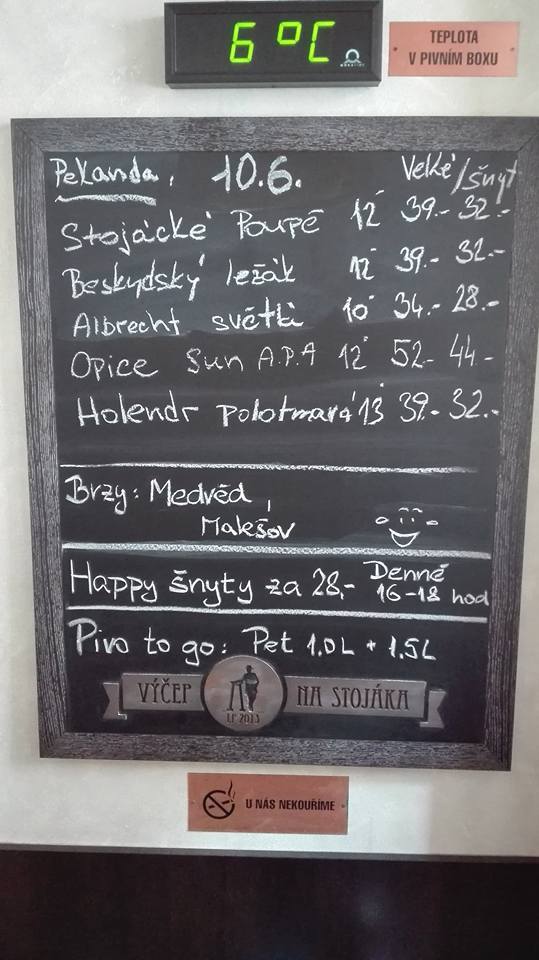 6°C
TEPLOTA
V PIVNÍM BOXU
Pekanda, 10.6. Velké/šnyt
Stojácké Poupě 12° 39.- 32.-
Beskydský ležák 12° 39.- 32.-
Albrecht světlý 10° 34.- 28.-
Opice Sun A.P.A 12° 52.- 44.-
Holendr polotmavá 13° 39.- 32.-
Brzy: Medvěd,
Malešov
Happy šnyty za 28,- Denně
16-18 hod
Pivo to go: Pet 1.0L + 1.5L
VÝČEP NA STOJÁKA
LP 2013
U NÁS NEKOUŘÍME